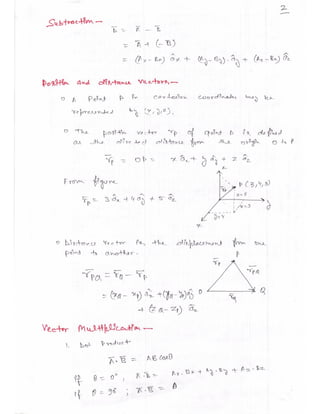 2
Subtraction —
= Ā - B̄
= Ā + (-B̄)
= (Ax - Bx) âx + (Ay - By) ây + (Az - Bz) âz
Position And distance Vectors —
A Point P in cartesian coordinates may be
represented by (x, y, z).
The position vector rp of point P is defined
as the directed distance from the origin O to P
r̄p = OP = x âx + y ây + z âz
From figure
r̄p = 3 âx + 4 ây + 5 âz
z
P (3,4,5)
z=5
x=3
y=4
y
x
Distance vector is the displacement from one
point to another.
r̄PQ = r̄Q - r̄p
= (xQ - xp) âx + (yQ - yp) ây
+ (zQ - zp) âz
P
r̄p
r̄PQ
O
r̄Q
Q
Vector Multiplication —
1. Dot Product
Ā · B̄ = AB cosθ
if θ = 0°, Ā · B̄ = Ax · Bx + Ay · By + Az · Bz
if θ = 90°, Ā · B̄ = 0